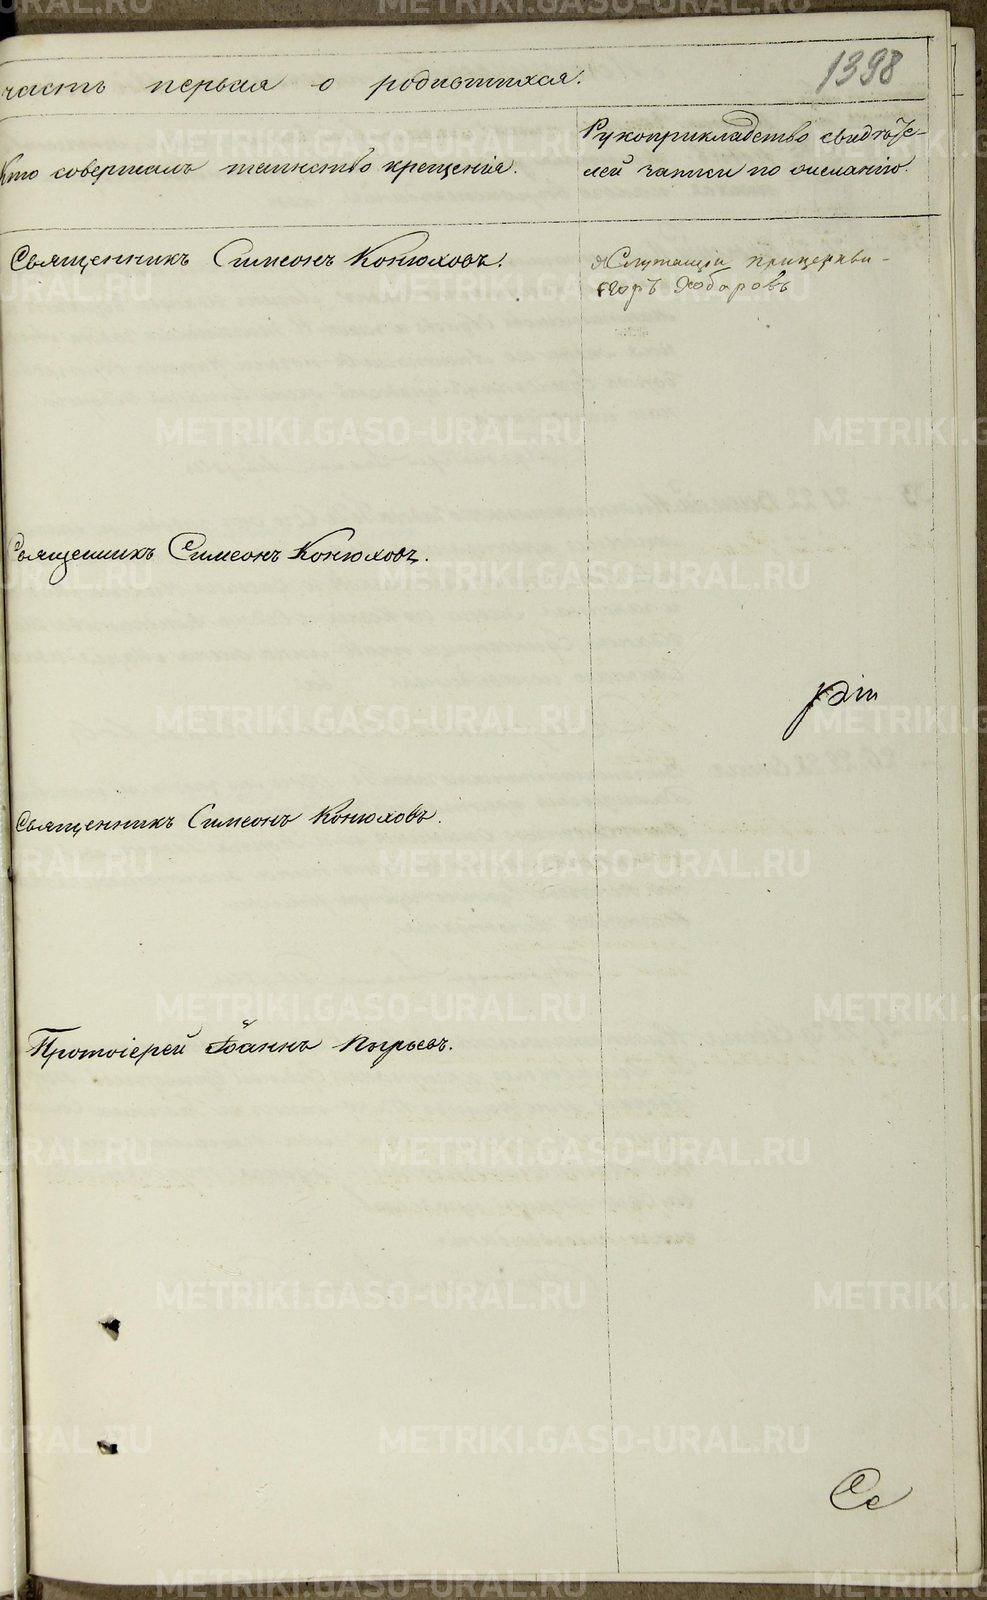 1398
часть первая о родившихся.
Кто совершалъ таинство крещенія.
Рукоприкладство свидѣте-
лей записи по желанію.
Священникъ Симеонъ Конюховъ.
Служащій
Егоръ Хобаровъ
Священникъ Симеонъ Конюховъ.
Священникъ Симеонъ Конюховъ.
Протоіерей Іоаннъ Пырьевъ.
METRIKI.GASO-URAL.RU